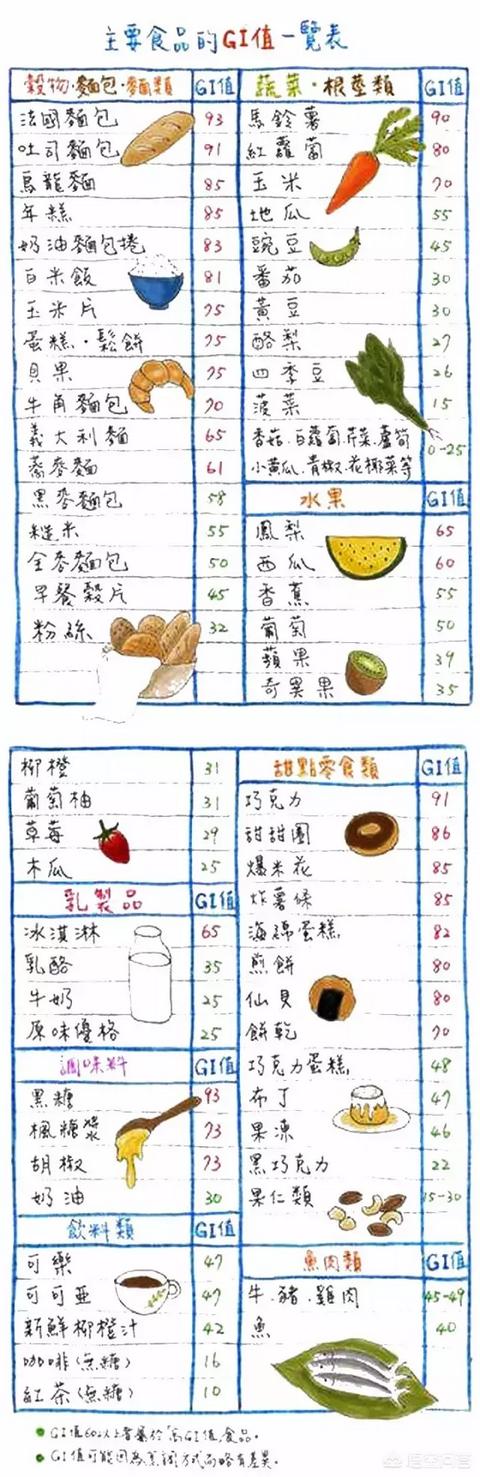 主要食品的GI值一覽表
穀物·麵包·麵類 GI值
法國麵包 93
吐司麵包 91
烏龍麵 85
年糕 85
奶油麵包捲 83
白米飯 81
玉米片 75
蛋糕·鬆餅 75
貝果 75
牛角麵包 70
義大利麵 65
蕎麥麵 61
黑麥麵包 58
糙米 55
全麥麵包 50
早餐穀片 45
粉絲 32
蔬菜·根莖類 GI值
馬鈴薯 90
紅蘿蔔 80
玉米 70
地瓜 55
豌豆 45
番茄 30
黃豆 30
酪梨 27
四季豆 26
菠菜 15
香菇.白蘿蔔.芹菜.蘆筍
小黃瓜.青椒.花椰菜等 0-25
水果 GI值
鳳梨 65
西瓜 60
香蕉 55
葡萄 50
蘋果 39
奇異果 35
柳橙 31
葡萄柚 31
草莓 29
木瓜 25
乳製品 GI值
冰淇淋 65
乳酪 35
牛奶 25
原味優格 25
調味料 GI值
黑糖 93
楓糖漿 73
胡椒 73
奶油 30
飲料類 GI值
可樂 47
可可亞 47
新鮮柳橙汁 42
咖啡(無糖) 16
紅茶(無糖) 10
甜點零食類 GI值
巧克力 91
甜甜圈 86
爆米花 85
炸薯條 85
海綿蛋糕 82
煎餅 80
仙貝 80
餅乾 70
巧克力蛋糕 48
布丁 47
果凍 46
黑巧克力 22
果仁類 15-30
魚肉類 GI值
牛.豬.雞肉 45-49
魚 40
GI值60以上者屬於「高GI值」食品。
GI值可能因為烹調方式而略有差異。
悟空问答